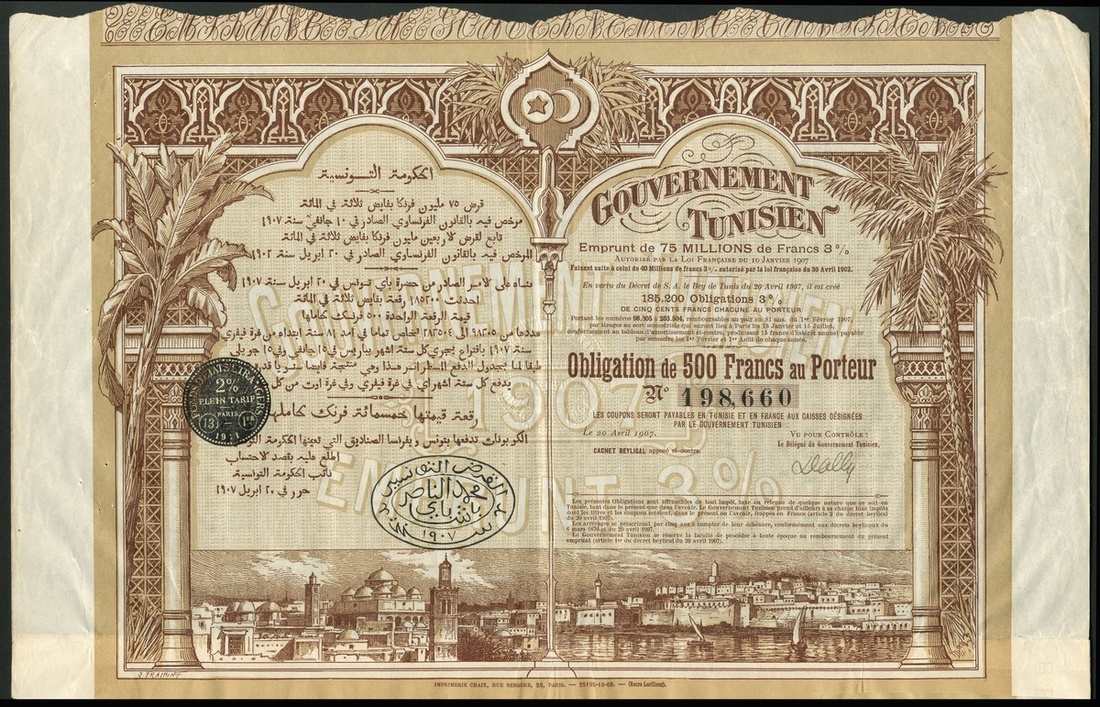 الحكومة التونسية
قرض ٧٥ مليون فرنكا بفايض ثلاثة في المائة
مرخص فيه بالقانون الفرنساوي الصادر في ١٠ جانفي سنة ١٩٠٧
تابع لقرض الاربعين مليون فرنكا بفايض ثلاثة في المائة
المرخص فيه بالقانون الفرنساوي الصادر في ٣٠ ابريل سنة ١٩٠٢
بناء على الامر الصادر من حضرة باي تونس في ٢٠ ابريل سنة ١٩٠٧
احدثت ١٨٥٢٠٠ رقعة بفايض ثلاثة في المائة
قيمة الرقعة الواحدة ٥٠٠ فرنك لحاملها
عددها من ٩٨٣٠٥ الى ٢٨٣٥٠٤ في امد ٨١ سنة ابتداء من غرة فيفري
سنة ١٩٠٧ باقتراع يجري كل ستة اشهر بباريس في ١٥ جانفي وفي ١٥ جويلي
يدفع كل ستة اشهر اي في غرة فيفري وفي غرة اوت من كل
رقعة قيمتها خمسمائة فرنك لحاملها
الكوبونات تدفعها بتونس وبفرنسا الصناديق التي تعينها الحكومة
اطلع عليه بقصد الاحتساب
نائب الحكومة التونسية
حرر في ٢٠ ابريل ١٩٠٧
القرض التونسي
محمد الناصر
باشا باي
١٩٠٧
2%
PLEIN TARIF
PARIS
GOUVERNEMENT
TUNISIEN
Emprunt de 75 MILLIONS de Francs 3%
AUTORISÉ PAR LA LOI FRANÇAISE DU 10 JANVIER 1907
Faisant suite à celui de 40 Millions de francs 3%, autorisé par la loi française du 30 Avril 1902.
En vertu du Décret de S. A. le Bey de Tunis du 20 Avril 1907, il est créé
185.200 Obligations 3%
DE CINQ CENTS FRANCS CHACUNE AU PORTEUR
Portant les numéros 98.305 à 283.504, remboursables au pair en 81 ans, du 1er Février 1907,
par tirages au sort semestriels qui auront lieu à Paris les 15 Janvier et 15 Juillet,
conformément au tableau d'amortissement ci-contre, produisant 15 francs d'intérêt annuel payable
par semestre les 1er Février et 1er Août de chaque année.
Obligation de 500 Francs au Porteur
No 198,660
LES COUPONS SERONT PAYABLES EN TUNISIE ET EN FRANCE AUX CAISSES DÉSIGNÉES
PAR LE GOUVERNEMENT TUNISIEN
Le 20 Avril 1907.
VU POUR CONTRÔLE:
Le Délégué du Gouvernement Tunisien,
CACHET BEYLICAL apposé ci-contre.
Les présentes Obligations sont affranchies de tout impôt, taxe ou retenue de quelque nature que ce soit en
Tunisie, tant dans le présent que dans l'avenir. Le Gouvernement Tunisien prend d'ailleurs à sa charge tous impôts
dont les titres et les coupons seraient, dans le présent ou l'avenir, frappés en France (article 2 du décret beylical
du 20 avril 1907).
Les arrérages se prescriront par cinq ans à compter de leur échéance, conformément aux décrets beylicaux du
6 mars 1876 et du 20 avril 1907.
Le Gouvernement Tunisien se réserve la faculté de procéder à toute époque au remboursement du présent
emprunt (article 1er du décret beylical du 20 avril 1907).
GOUVERNEMENT TUNISIEN
1907
EMPRUNT 3%
IMPRIMERIE CHAIX, RUE BERGÈRE, 20, PARIS. — 25195-10-08. — (Encre Lorilleux).